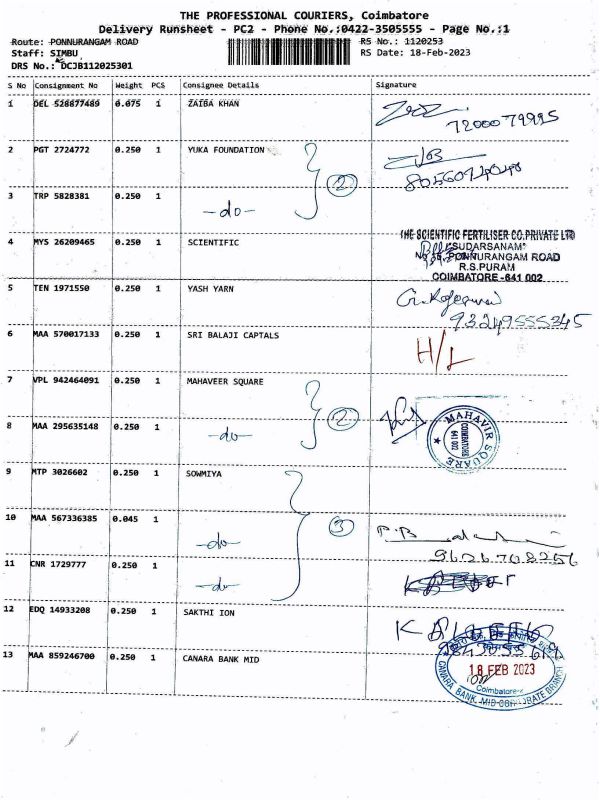 THE PROFESSIONAL COURIERS, Coimbatore
Delivery Runsheet - PC2 - Phone No.:0422-3505555 - Page No.:1
Route: PONNURANGAM ROAD RS No.: 1120253
Staff: SIMBU RS Date: 18-Feb-2023
DRS No.: DCJB112025301
S No Consignment No Weight PCS Consignee Details Signature
1 DEL 528877489 0.075 1 ZAIBA KHAN
7200079995
2 PGT 2724772 0.250 1 YUKA FOUNDATION 2
3 TRP 5828381 0.250 1 -do-
4 MYS 26209465 0.250 1 SCIENTIFIC THE SCIENTIFIC FERTILISER CO.PRIVATE LTD
"SUDARSANAM"
PONNURANGAM ROAD
R.S.PURAM
COIMBATORE-641 002
5 TEN 1971550 0.250 1 YASH YARN
6 MAA 570017133 0.250 1 SRI BALAJI CAPTALS H/L
7 VPL 942464091 0.250 1 MAHAVEER SQUARE 2
8 MAA 295635148 0.250 1 -do- MAHAVIR SQUARE
COIMBATORE
641 002
9 MTP 3026602 0.250 1 SOWMIYA 3
10 MAA 567336385 0.045 1 -do-
9626708256
11 CNR 1729777 0.250 1 -do-
12 EDQ 14933208 0.250 1 SAKTHI ION
13 MAA 859246700 0.250 1 CANARA BANK MID
18 FEB 2023
Coimbatore
CANARA BANK MID CORPORATE BRANCH